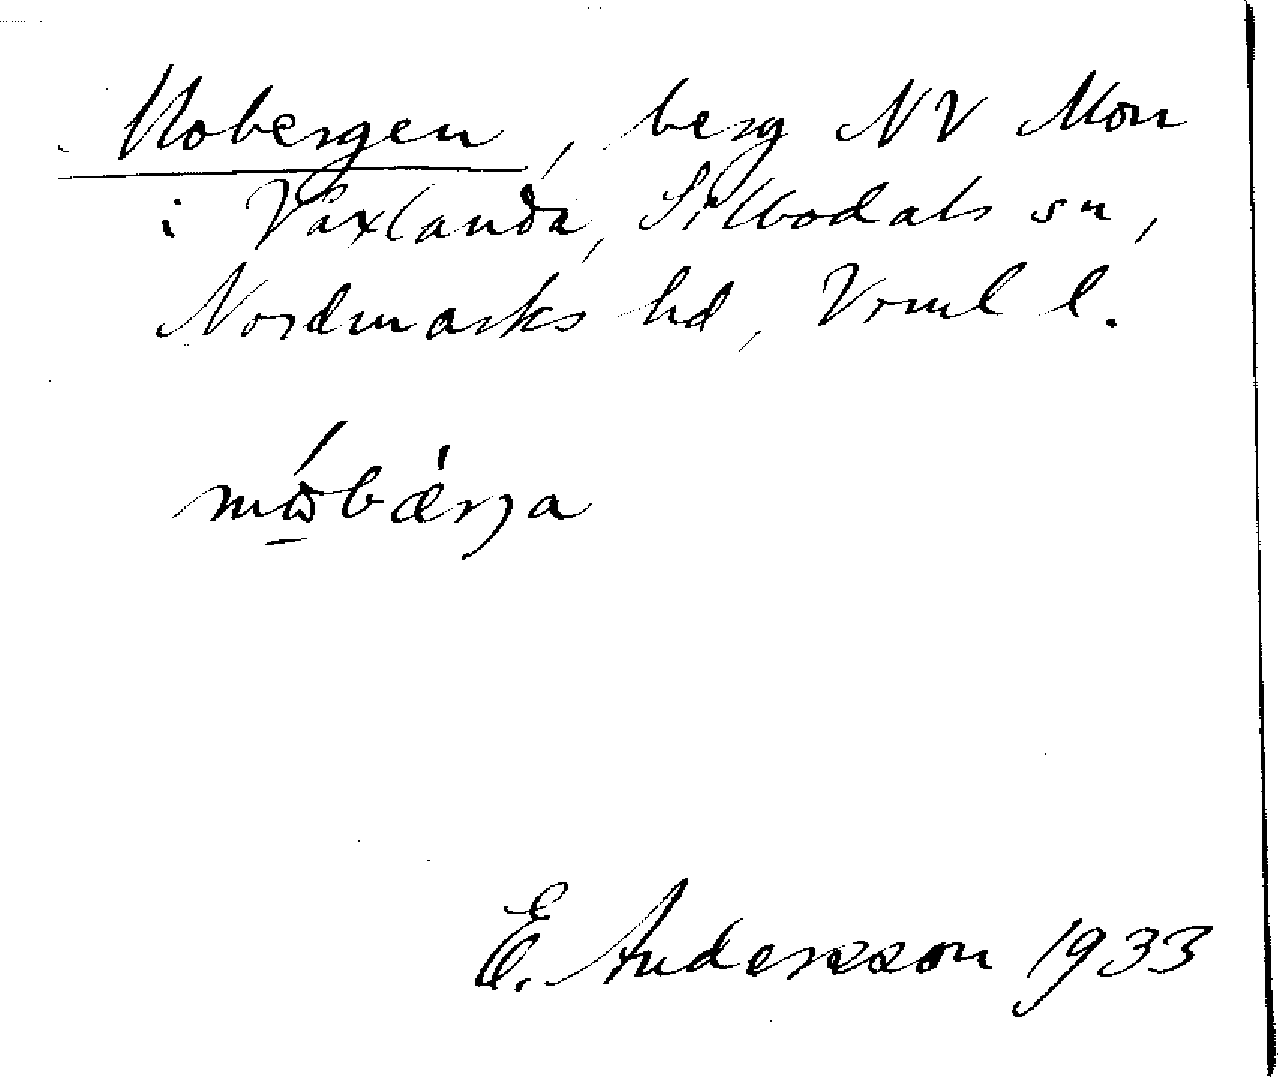 Mobergen, berg NV Mon
i Växlanda, Sillbodals sn,
Nordmarks hd, Vrml l.
mɷ́bæ̀rja
E. Andersson 1933